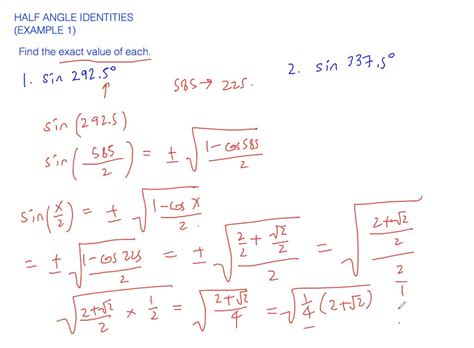 HALF ANGLE IDENTITIES
(EXAMPLE 1)
Find the exact value of each.
1. sin 292.5°
585 → 225.
2. sin 337.5°
sin (292.5)
sin (585/2) = ± √((1-cos585)/2)
sin (x/2) = ± √((1-cos x)/2)
= ± √((1-cos 225)/2) = ± √((2/2 + √2/2)/2) = √(((2+√2)/2)/(2/1))
√((2+√2)/2 × 1/2) = √((2+√2)/4) = √(1/4 (2+√2))